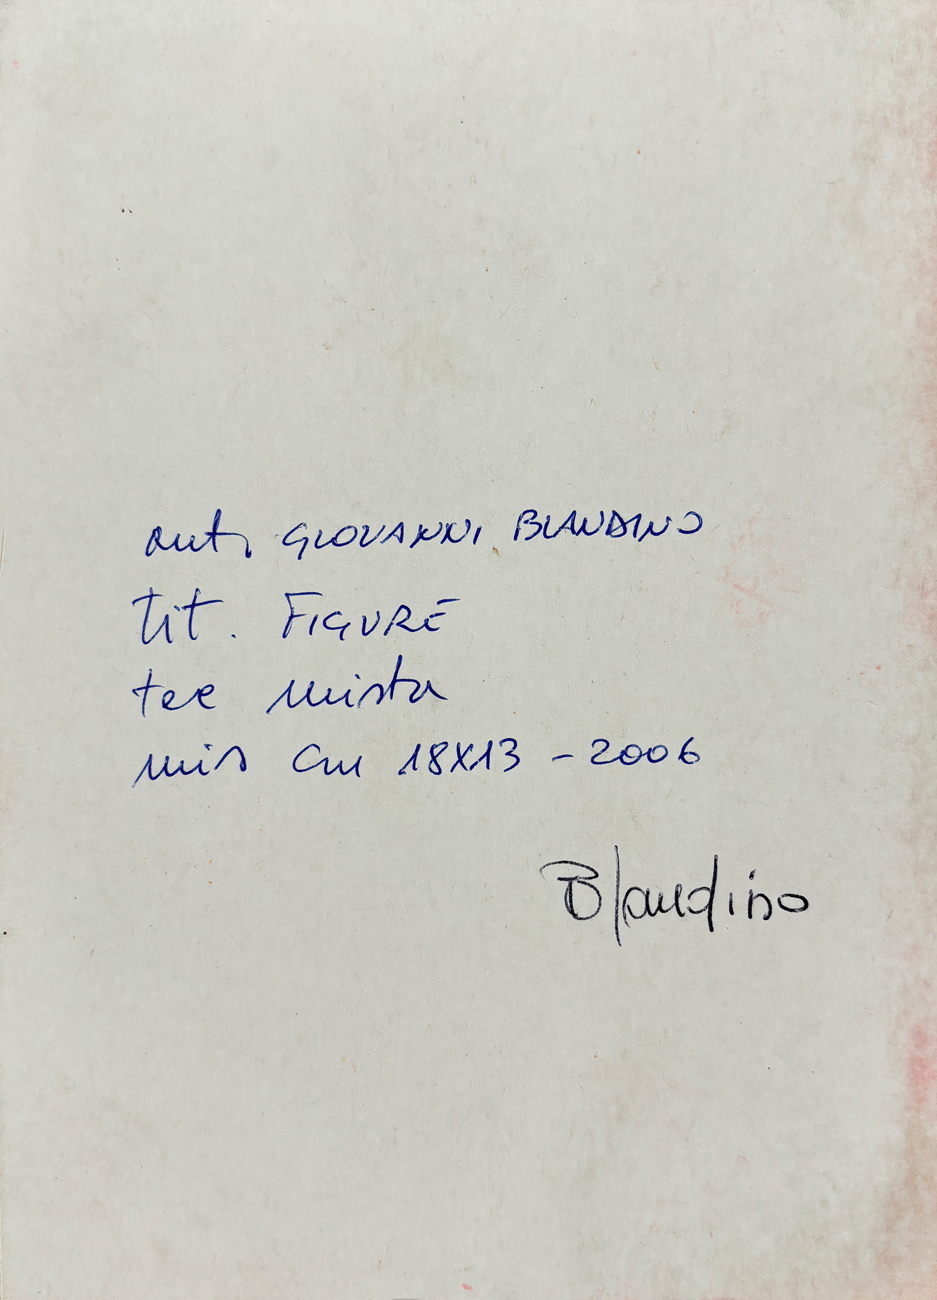 aut. GIOVANNI BLANDINO
tit. FIGURE
tec mista
mis cm 18X13 - 2006
Blandino